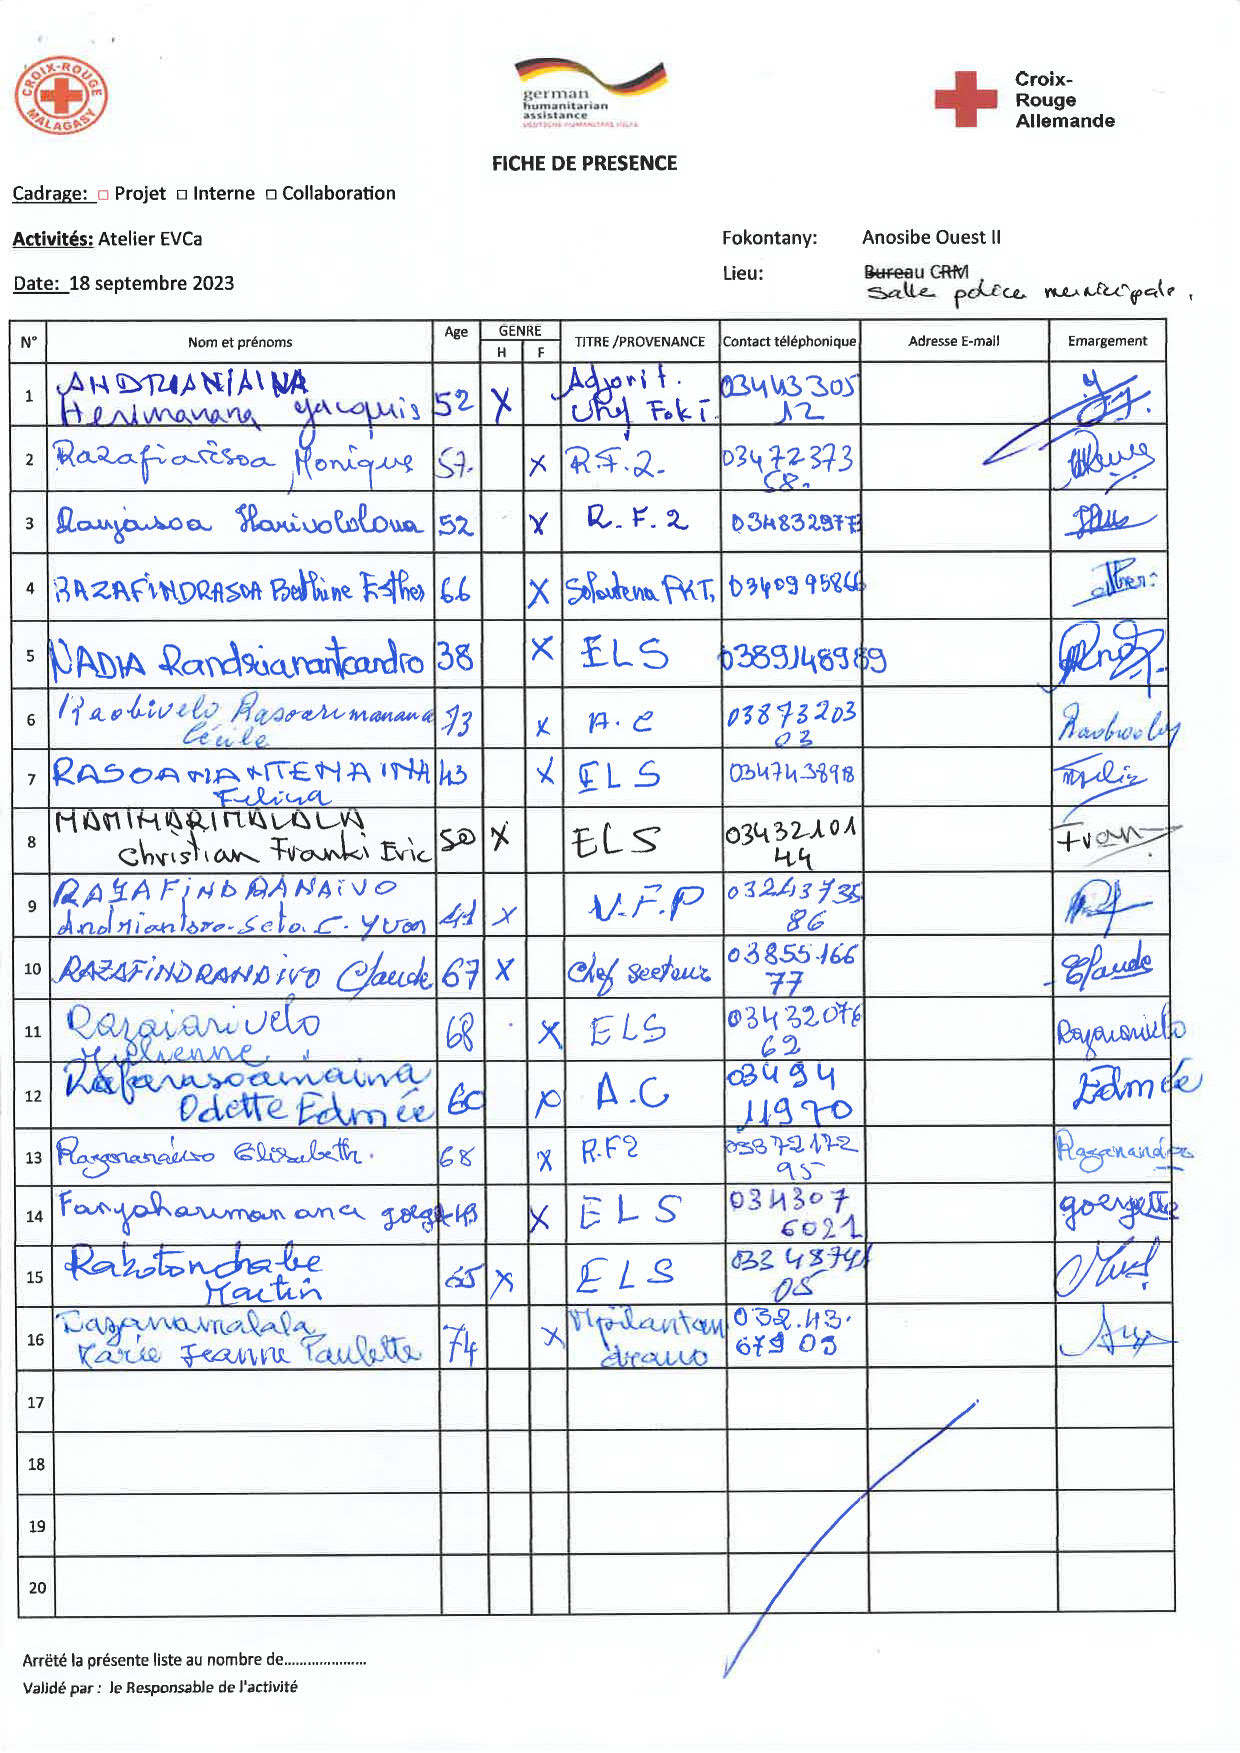 CROIX-ROUGE
MALAGASY
german
humanitarian
assistance
DEUTSCHE HUMANITÄRE HILFE
Croix-
Rouge
Allemande
FICHE DE PRESENCE
Cadrage: □ Projet □ Interne □ Collaboration
Activités: Atelier EVCa
Fokontany: Anosibe Ouest II
Date: 18 septembre 2023
Lieu: Bureau CRM
Salle police municipale.
N° Nom et prénoms Age GENRE TITRE /PROVENANCE Contact téléphonique Adresse E-mail Emargement
H F
1 ANDRIANIAINA Herimanana Jacquis 52 X Adjoint. Chef Fokt 03443305 12
2 Razafiarisoa Monique 57. X R.F.2. 03472373 68.
3 Harivololona 52 X R.F.2 034832977
4 RAZAFINDRASOA Berthine Esther 66 X FKT, 034099586
5 NADIA Randrianantoandro 38 X ELS 0389148989
6 Raobivelo Rasoarimanana Cécile 73 X A.C 03873203 03
7 RASOAMANTENAINA Felina 43 X ELS 0347438918
8 MAMIHARIMALALA Christian Franki Eric 50 X ELS 03432101 44 Fran
9 RAZAFINDRANAIVO C. Yvon 41 X V.F.P 03243735 86
10 RAZAFINDRANAIVO Claude 67 X Chef secteur 03855166 77 Claude
11 Razaiarivelo 68 X ELS 03432076 62 Razaiarivelo
12 Odette Edmée 60 X A.C 03494 11970 Edmée
13 Elisabeth. 68 X R.F2 03872172 95
14 Fanjaharimanana 43 X ELS 034307 6021 goergette
15 Rakotondrabe Martin 65 X ELS 033 48741 05
16 Razanamalala Marie Jeanne Paulette 74 X Mpilantan drano 032.43. 679 03
17
18
19
20
Arrêté la présente liste au nombre de.....................
Validé par : le Responsable de l'activité